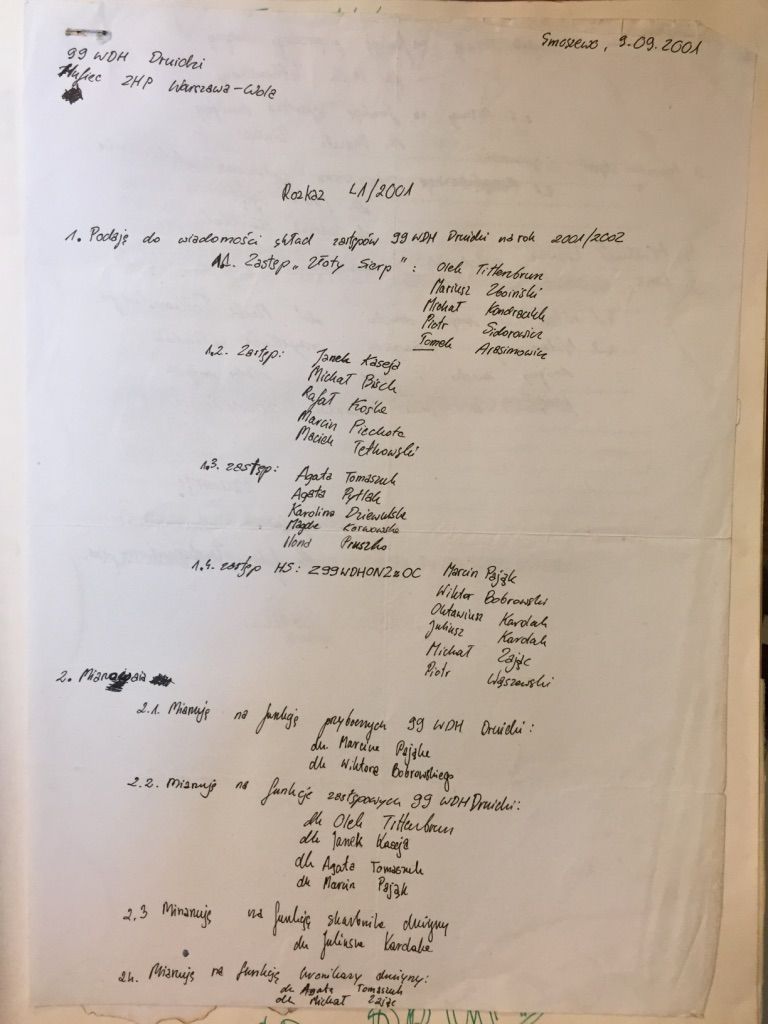 Smoszewo, 9.09.2001
99 WDH Druidzi
Hufiec ZHP Warszawa-Wola
Rozkaz L1/2001
1. Podaję do wiadomości skład zastępów 99 WDH Druidzi na rok 2001/2002
1.1. Zastęp "Złoty Sierp": Olek Tittenbrun
Mariusz Zboiński
Michał Kondraciuk
Piotr Sidorowicz
Tomek Arasimowicz
1.2. Zastęp: Janek Kaseja
Michał Bisek
Rafał Kośka
Marcin Piechota
Maciek Tetkowski
1.3. zastęp: Agata Tomaszuk
Agata Pytlak
Karolina Dziewulska
Magda Karwowska
Ilona Pruszko
1.4. zastęp HS: Z99WDHONZzOC Marcin Pająk
Wiktor Bobrowski
Oktawiusz Kardah
Juliusz Kardah
Michał Zając
Piotr Wąszewski
2. Mianowania
2.1. Mianuję na funkcję przybocznych 99 WDH Druidzi:
dh Marcina Pająka
dh Wiktora Bobrowskiego
2.2. Mianuję na funkcje zastępowych 99 WDH Druidzi:
dh Olek Tittenbrun
dh Janek Kaseja
dh Agata Tomaszuk
dh Marcin Pająk
2.3 Mianuję na funkcję skarbnika drużyny
dh Juliusza Kardaha
2.4. Mianuję na funkcję kronikarzy drużyny:
dh Agata Tomaszuk
dh Michał Zając